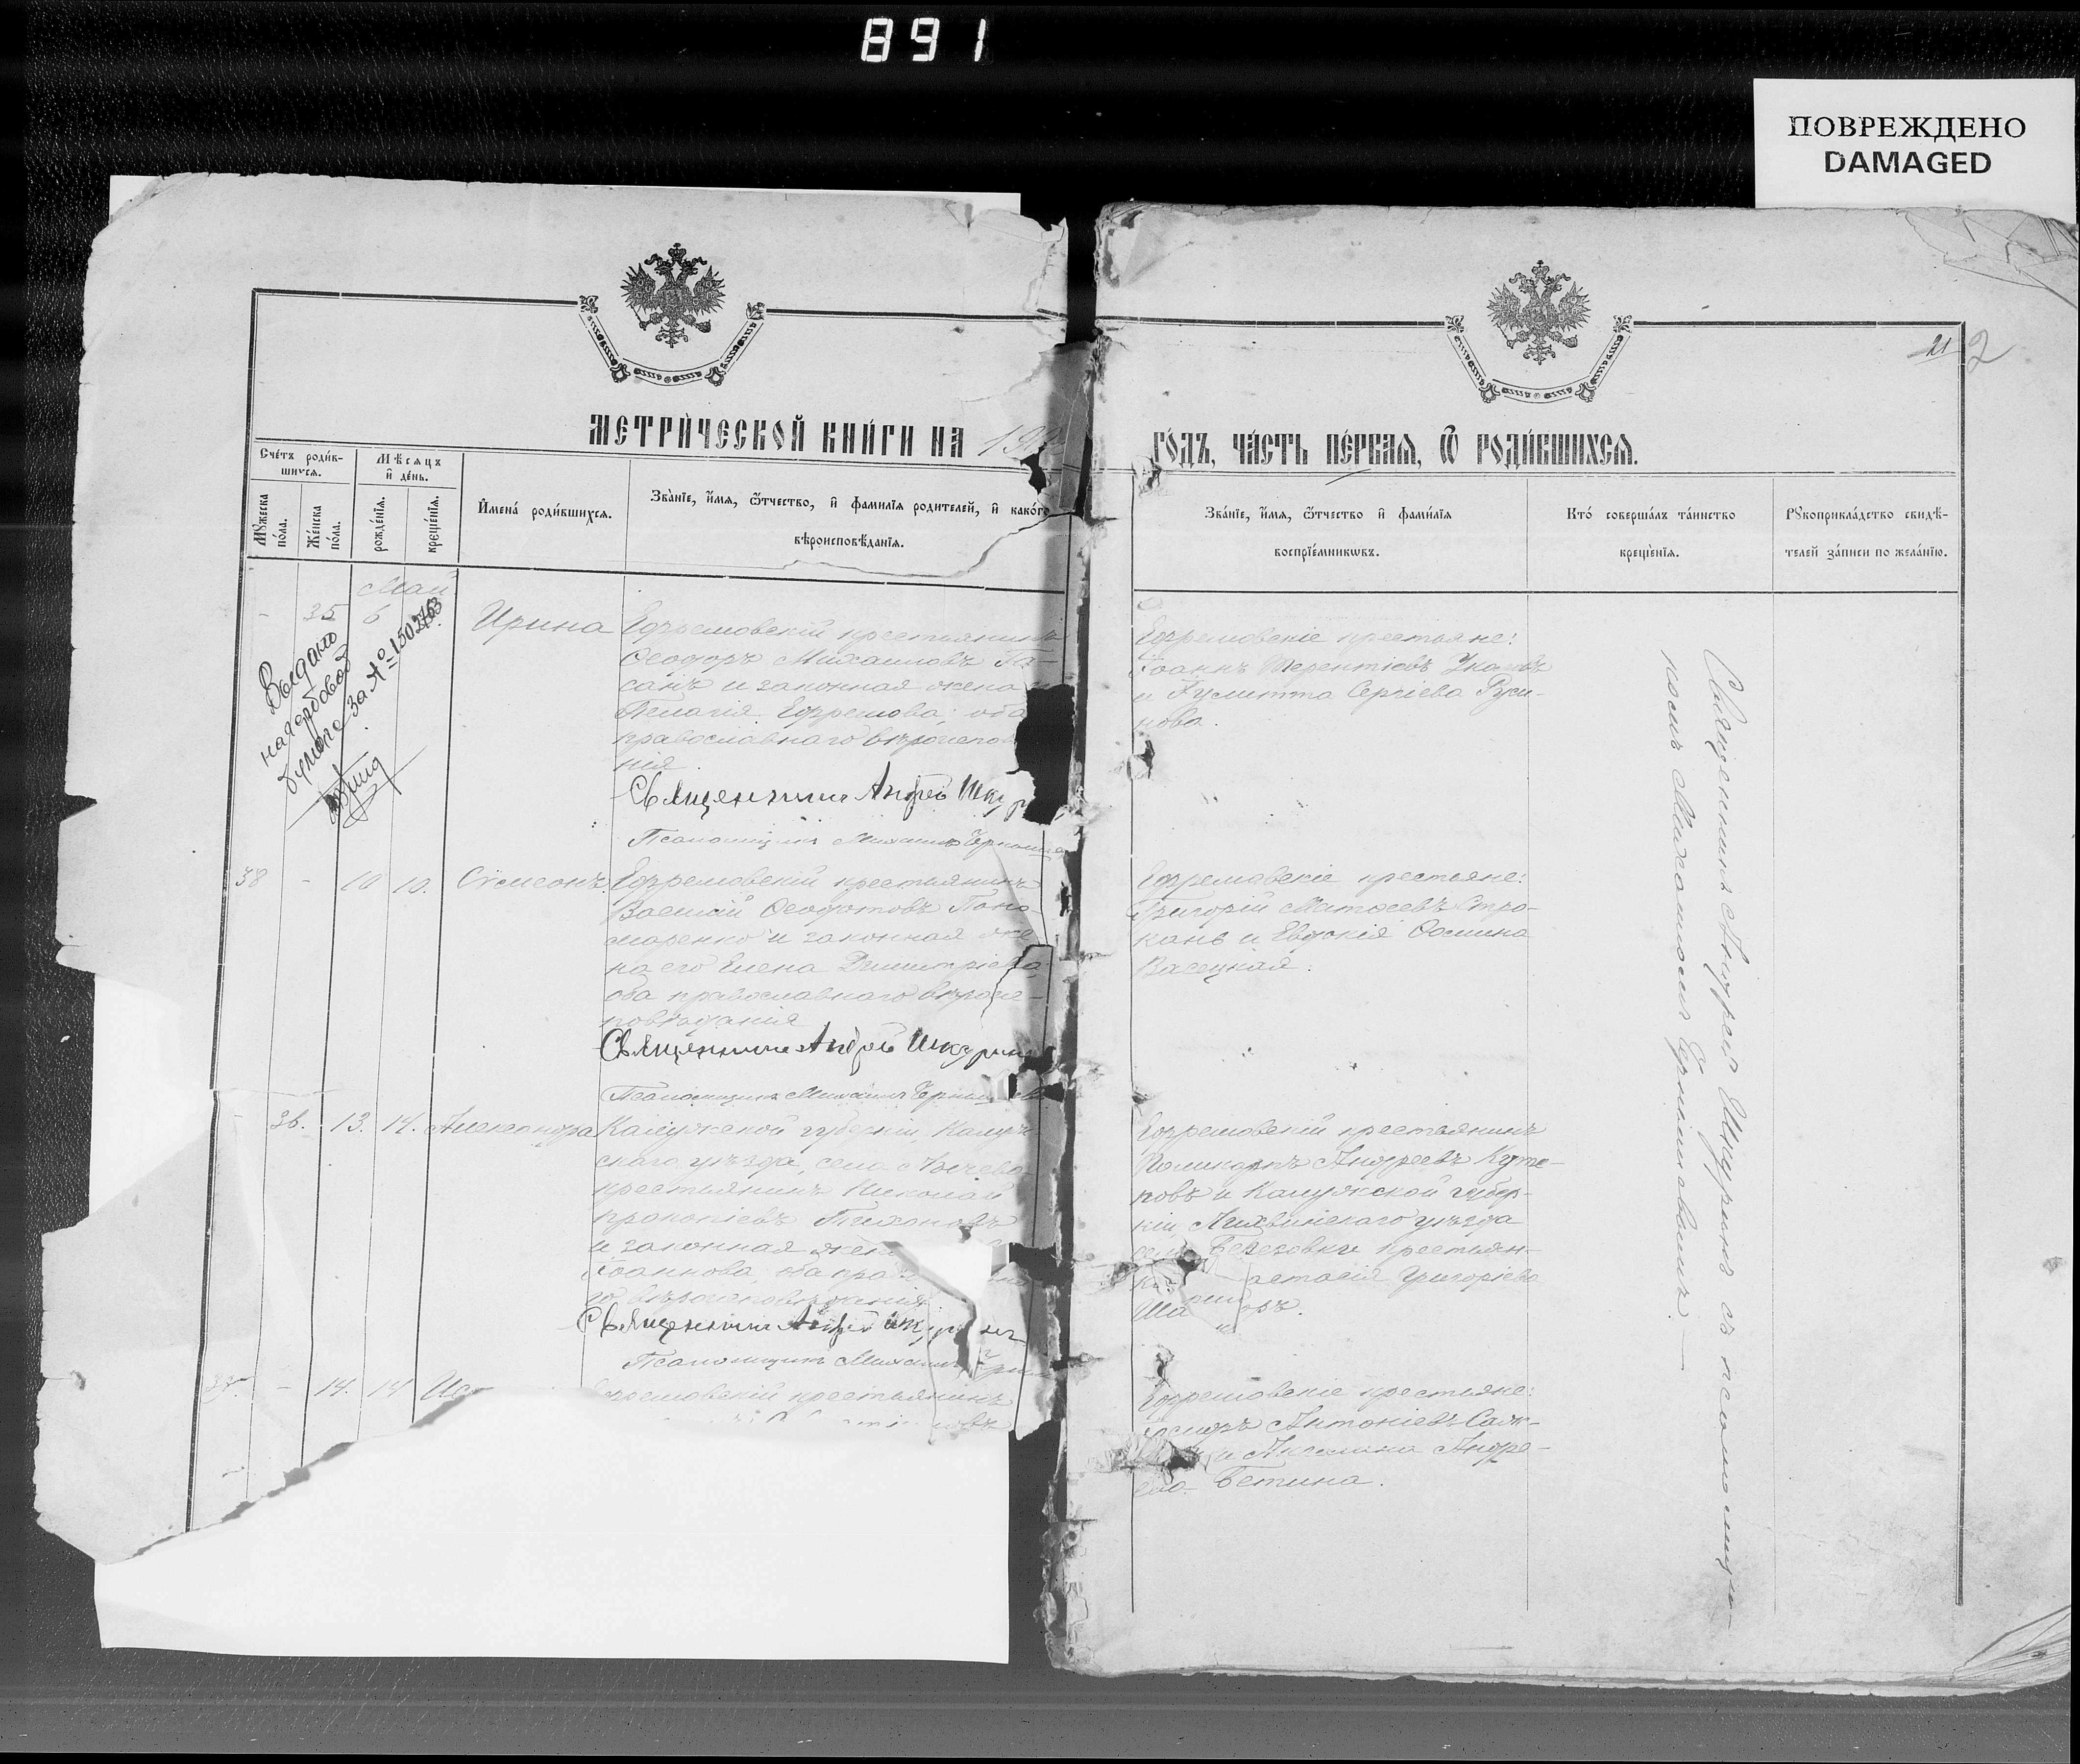 891
ПОВРЕЖДЕНО
DAMAGED
21 2
МЕТРИ́ЧЕСКОЙ КНИ́ГИ НА 19
ГО́ДЪ, ЧА́СТЬ ПЕ́РВАЯ, Ѿ РОДИ́ВШИХСЯ.
Сче́тъ роди́в-
шихся.
Мѣсяцъ
и҆ де́нь.
Мꙋжеска
по́ла.
Же́нска
по́ла.
рожде́нїя.
креще́нїя.
И҆мена́ роди́вшихся.
Зва́нїе, и҆́мя, ѻ҆́тчество, и҆ фами́лїя родителей, и҆ како́гѡ
вѣроисповѣ́данїя.
Зва́нїе, и҆́мя, ѻ҆́тчество и҆ фами́лїя
воспрїе́мникѡвъ.
Кто́ соверша́лъ та́инство
креще́нїя.
Рꙋкоприкла́дство свидѣ́-
телей за́писи по жела́нїю.
Май
- 35 6
Ирина
Ефремовскій крестьянинъ
Ѳеодоръ Михаиловъ Га-
санъ и законная жена
Пелагія Ефремова; оба
православнаго вѣроиспов
нія.
Священникъ Андрей Шкур
Псаломщикъ Михаилъ
Ефремовскіе крестьяне:
Іоаннъ Терентіевъ
и Іулитта Сергіева Руси-
нова.
Выдано
на гербовой
бумаге за №
38 - 10 10.
Сѵмеонъ
Ефремовскій крестьянинъ
Василій Ѳеодотовъ Поно-
маренко и законная же-
на его Елена Димитріева,
оба православнаго вѣроис-
повѣданія
Священникъ Андрей Шкурин
Псаломщикъ Михаилъ
Ефремовскіе крестьяне:
Григорій Матѳеевъ Стро-
кань и Евдокія Ѳомина
Васецкая.
- 36. 13. 14.
Александра
Калужской губерніи, Калуж
скаго уѣзда, села
крестьянинъ Николай
Прокопіевъ Тихоновъ
и законная жен
Іоаннова, оба пра
го вѣроисповѣданія.
Священникъ Андрей Шкур
Псаломщикъ Михаилъ
Ефремовскій крестьянинъ
Поликарпъ Андреевъ Куте-
повъ и Калужской губер-
ніи, Лихвинскаго уѣзда
села Березовки крестьян-
ка астасія Григоріева
Ша
39. - 14. 14
Ис
Ефремовскій крестьянинъ
Ефремовскіе крестьяне:
Іосифъ Антоніевъ Саж-
и Акилина Андре-
ева Бетина.
Священникъ Андрей Шкуринъ съ псаломщи-
комъ Михаиломъ